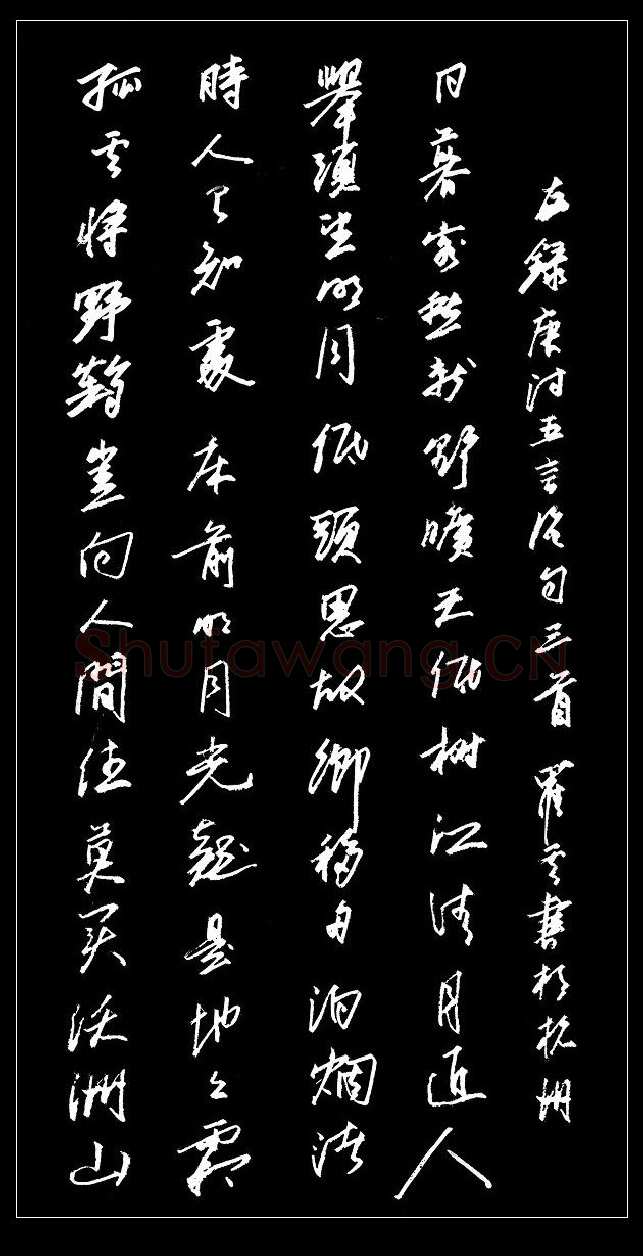 孤雲將野鶴豈向人間住莫买沃洲山
時人已知處床前明月光疑是地上霜
舉頭望明月低頭思故鄉移舟泊烟渚
日暮客愁新野曠天低樹江清月近人
左録唐詩五言絕句三首 云書於杭州
Shufawang.CN